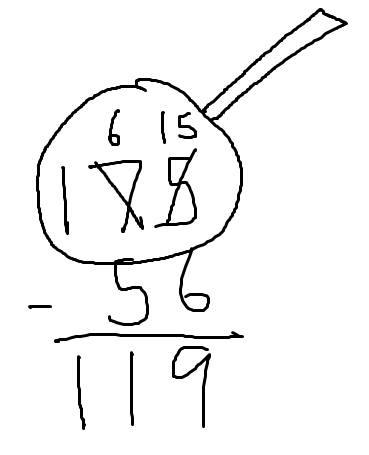 6 15
175
- 56
119